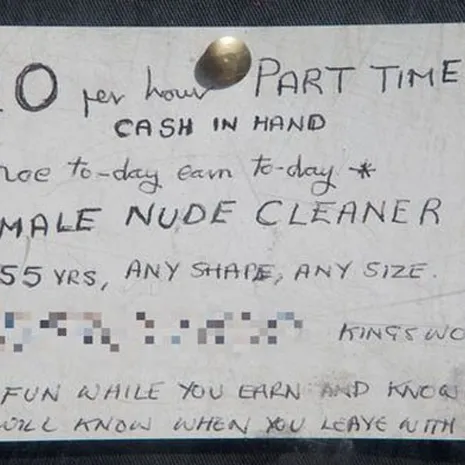 0 per hour PART TIME
CASH IN HAND
to-day earn to-day *
MALE NUDE CLEANER
55 YRS, ANY SHAPE, ANY SIZE.
KINGSWO
FUN WHILE YOU EARN AND KNOW
KNOW WHEN YOU LEAVE WITH